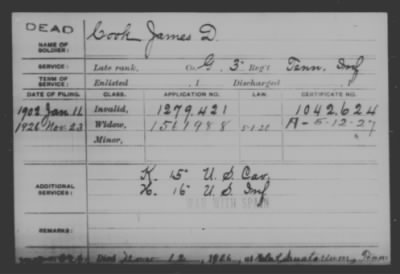 DEAD
NAME OF SOLDIER: Cook James D.
SERVICE: Late rank, Co. G, 3 Reg't Tenn. Inf
TERM OF SERVICE: Enlisted , 1 Discharged , 1
DATE OF FILING. CLASS. APPLICATION NO. LAW. CERTIFICATE NO.
1902 Jan 11 Invalid, 1279.421 1042.624
1926 Nov. 23 Widow, 1561988 5-1-20 A-5-12-27
Minor,
ADDITIONAL SERVICES: K. 15 U.S. Cav.
16 U.S. Inf
WAR WITH SPAIN
REMARKS:
Died 12, 1926, at Sanatorium, Tenn